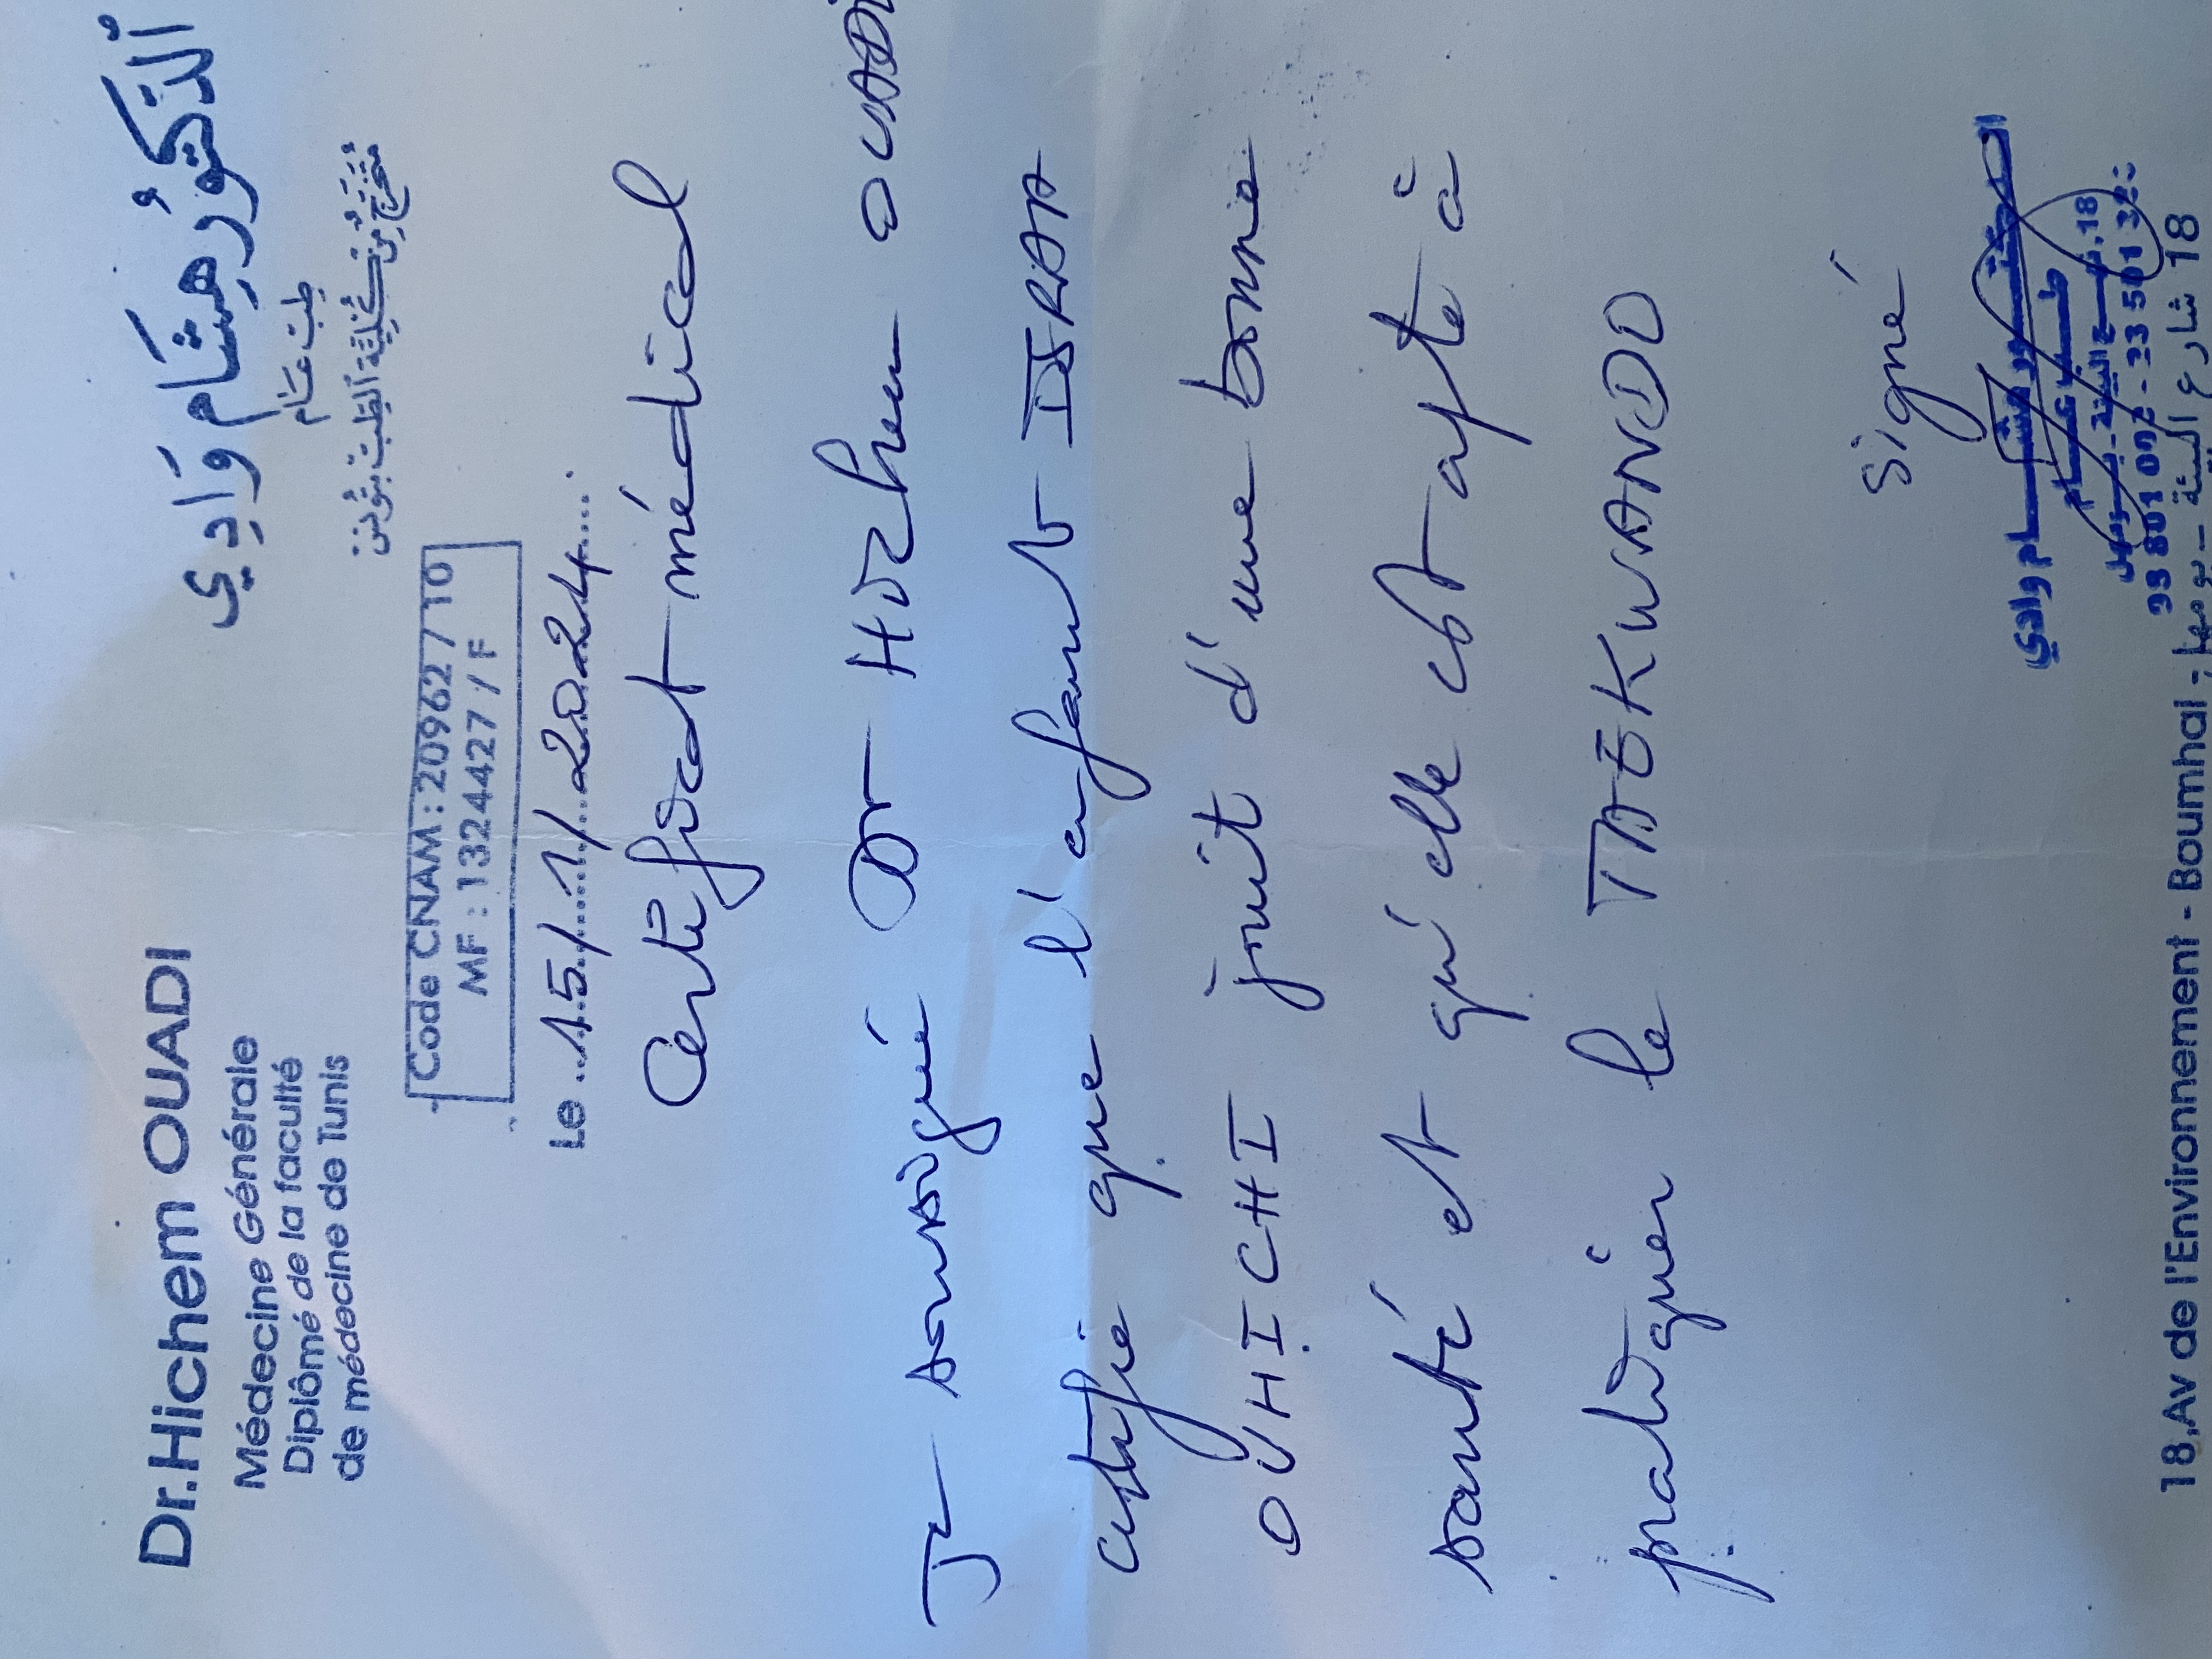 Dr.Hichem OUADI
Médecine Générale
Diplômé de la faculté
de médecine de Tunis
اَلدّكتُور هِشَام وَادِي
طِبّ عَـام
مُتَخَرّج مِن كُلّيَّة اَلطّب بتُونس
Code CNAM : 20962 / 10
MF : 1324427 / F
Le 15/1/2024
Certificat médical
Je soussigné Dr Hichem OUADI
certifie que l'enfant ISRAA
OUHICHI jouit d'une bonne
santé et qu'elle est apte à
pratiquer le TAEKWANDO
signé
الدكتـــور هشـــام وادي
طــب عـــام
18، نهـج البيئة - بومهل
18,Av de l'Environnement - Boumhal - 18 شارع البيئة - بومهل